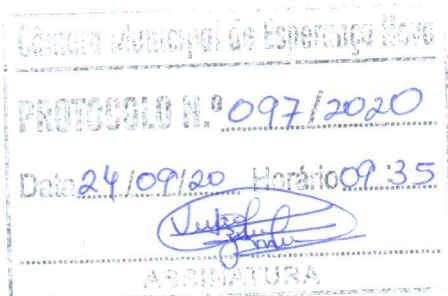 Câmara Municipal de Esperança Nova
PROTOCOLO N.º 097/2020
Data 24/09/20 Horário 09:35
ASSINATURA